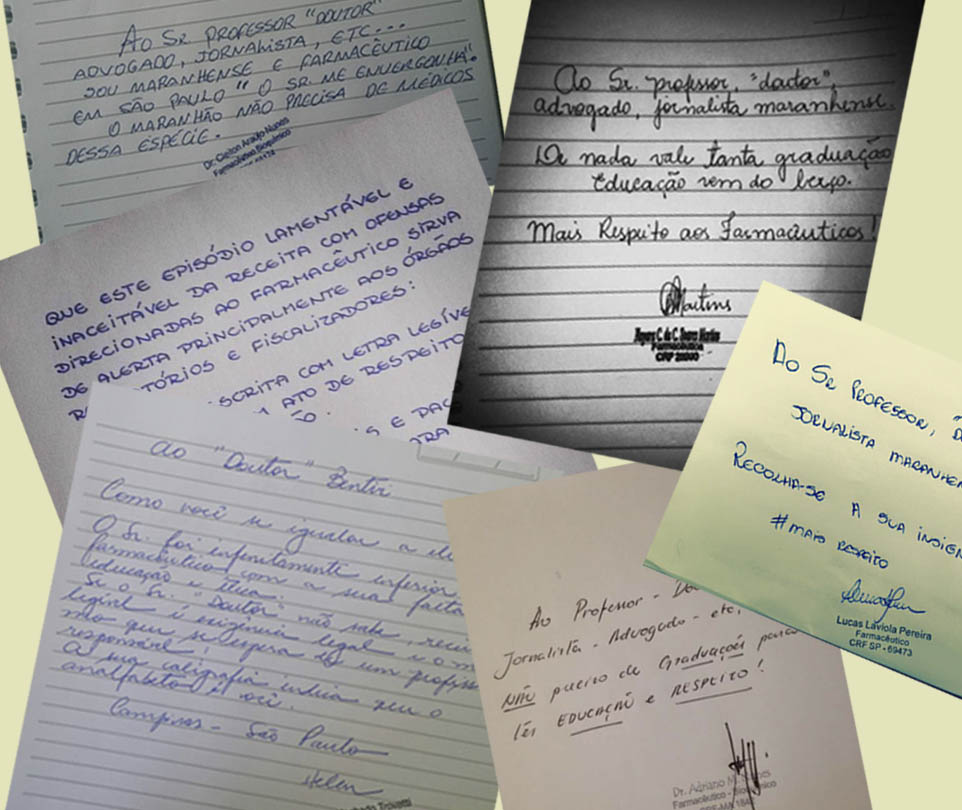 Ao Sr PROFESSOR "DOUTOR"
ADVOGADO, JORNALISTA, ETC...
SOU MARANHENSE E FARMACÊUTICO
EM SÃO PAULO " O SR ME ENVERGONHA".
O MARANHÃO NÃO PRECISA DE MÉDICOS
DESSA ESPÉCIE.
Araújo Nunes
Farmacêutico Bioquímico
Ao Sr. professor, "doctor",
advogado, jornalista maranhense.
De nada vale tanta graduação
Educação vem do berço.
Mais Respeito aos Farmacêuticos!
Martins
Farmacêutica
QUE ESTE EPISÓDIO LAMENTÁVEL E
INACEITÁVEL DA RECEITA COM OFENSAS
DIRECIONADAS AO FARMACÊUTICO SIRVA
DE ALERTA PRINCIPALMENTE AOS ÓRGÃOS
TÓRIOS E FISCALIZADORES:
SCRITA COM LETRA LEGÍVE
ATO DE RESPEITO
S E PAC
Ao Sr PROFESSOR, "D
JORNALISTA MARANHEN
RECOLHA-SE A SUA INSIGN
#MAIS RESPEITO
Lucas Laviola Pereira
Farmacêutico
CRF SP - 69473
Ao "Doutor" Bentiv
Como você se igualar a ele
O Sr. foi infinitamente inferior
farmacêutico com a sua falta
educação e ética.
Se o Sr. "Doutor" não sabe,
legível é exigência legal e o m
mo que se espera de um profiss
responsável!
A sua caligrafia indica que o
analfabeto é você.
Campinas - São Paulo
Helen
Ao Professor - Do
Jornalista - Advogado - etc,
NÃO preciso de GRADUAÇÕES para
ter EDUCAÇÃO e RESPEITO!
Dr. Adriano M.
Farmacêutico - Bioquímico